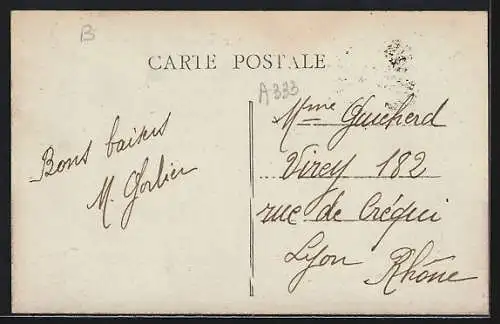 B
CARTE POSTALE
A333
Bons baisers
M. Gorlier
Mme Guicherd
Virey 182
rue de Créqui
Lyon Rhône